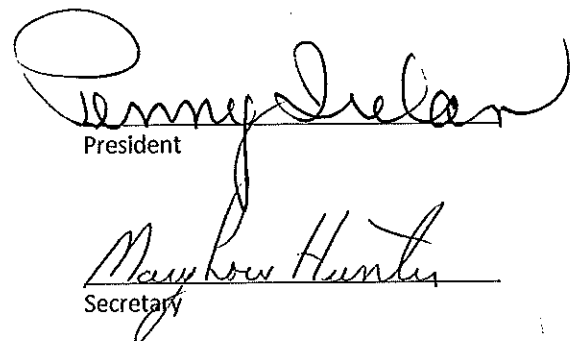 Penny
President
Mary Lou Hunter
Secretary